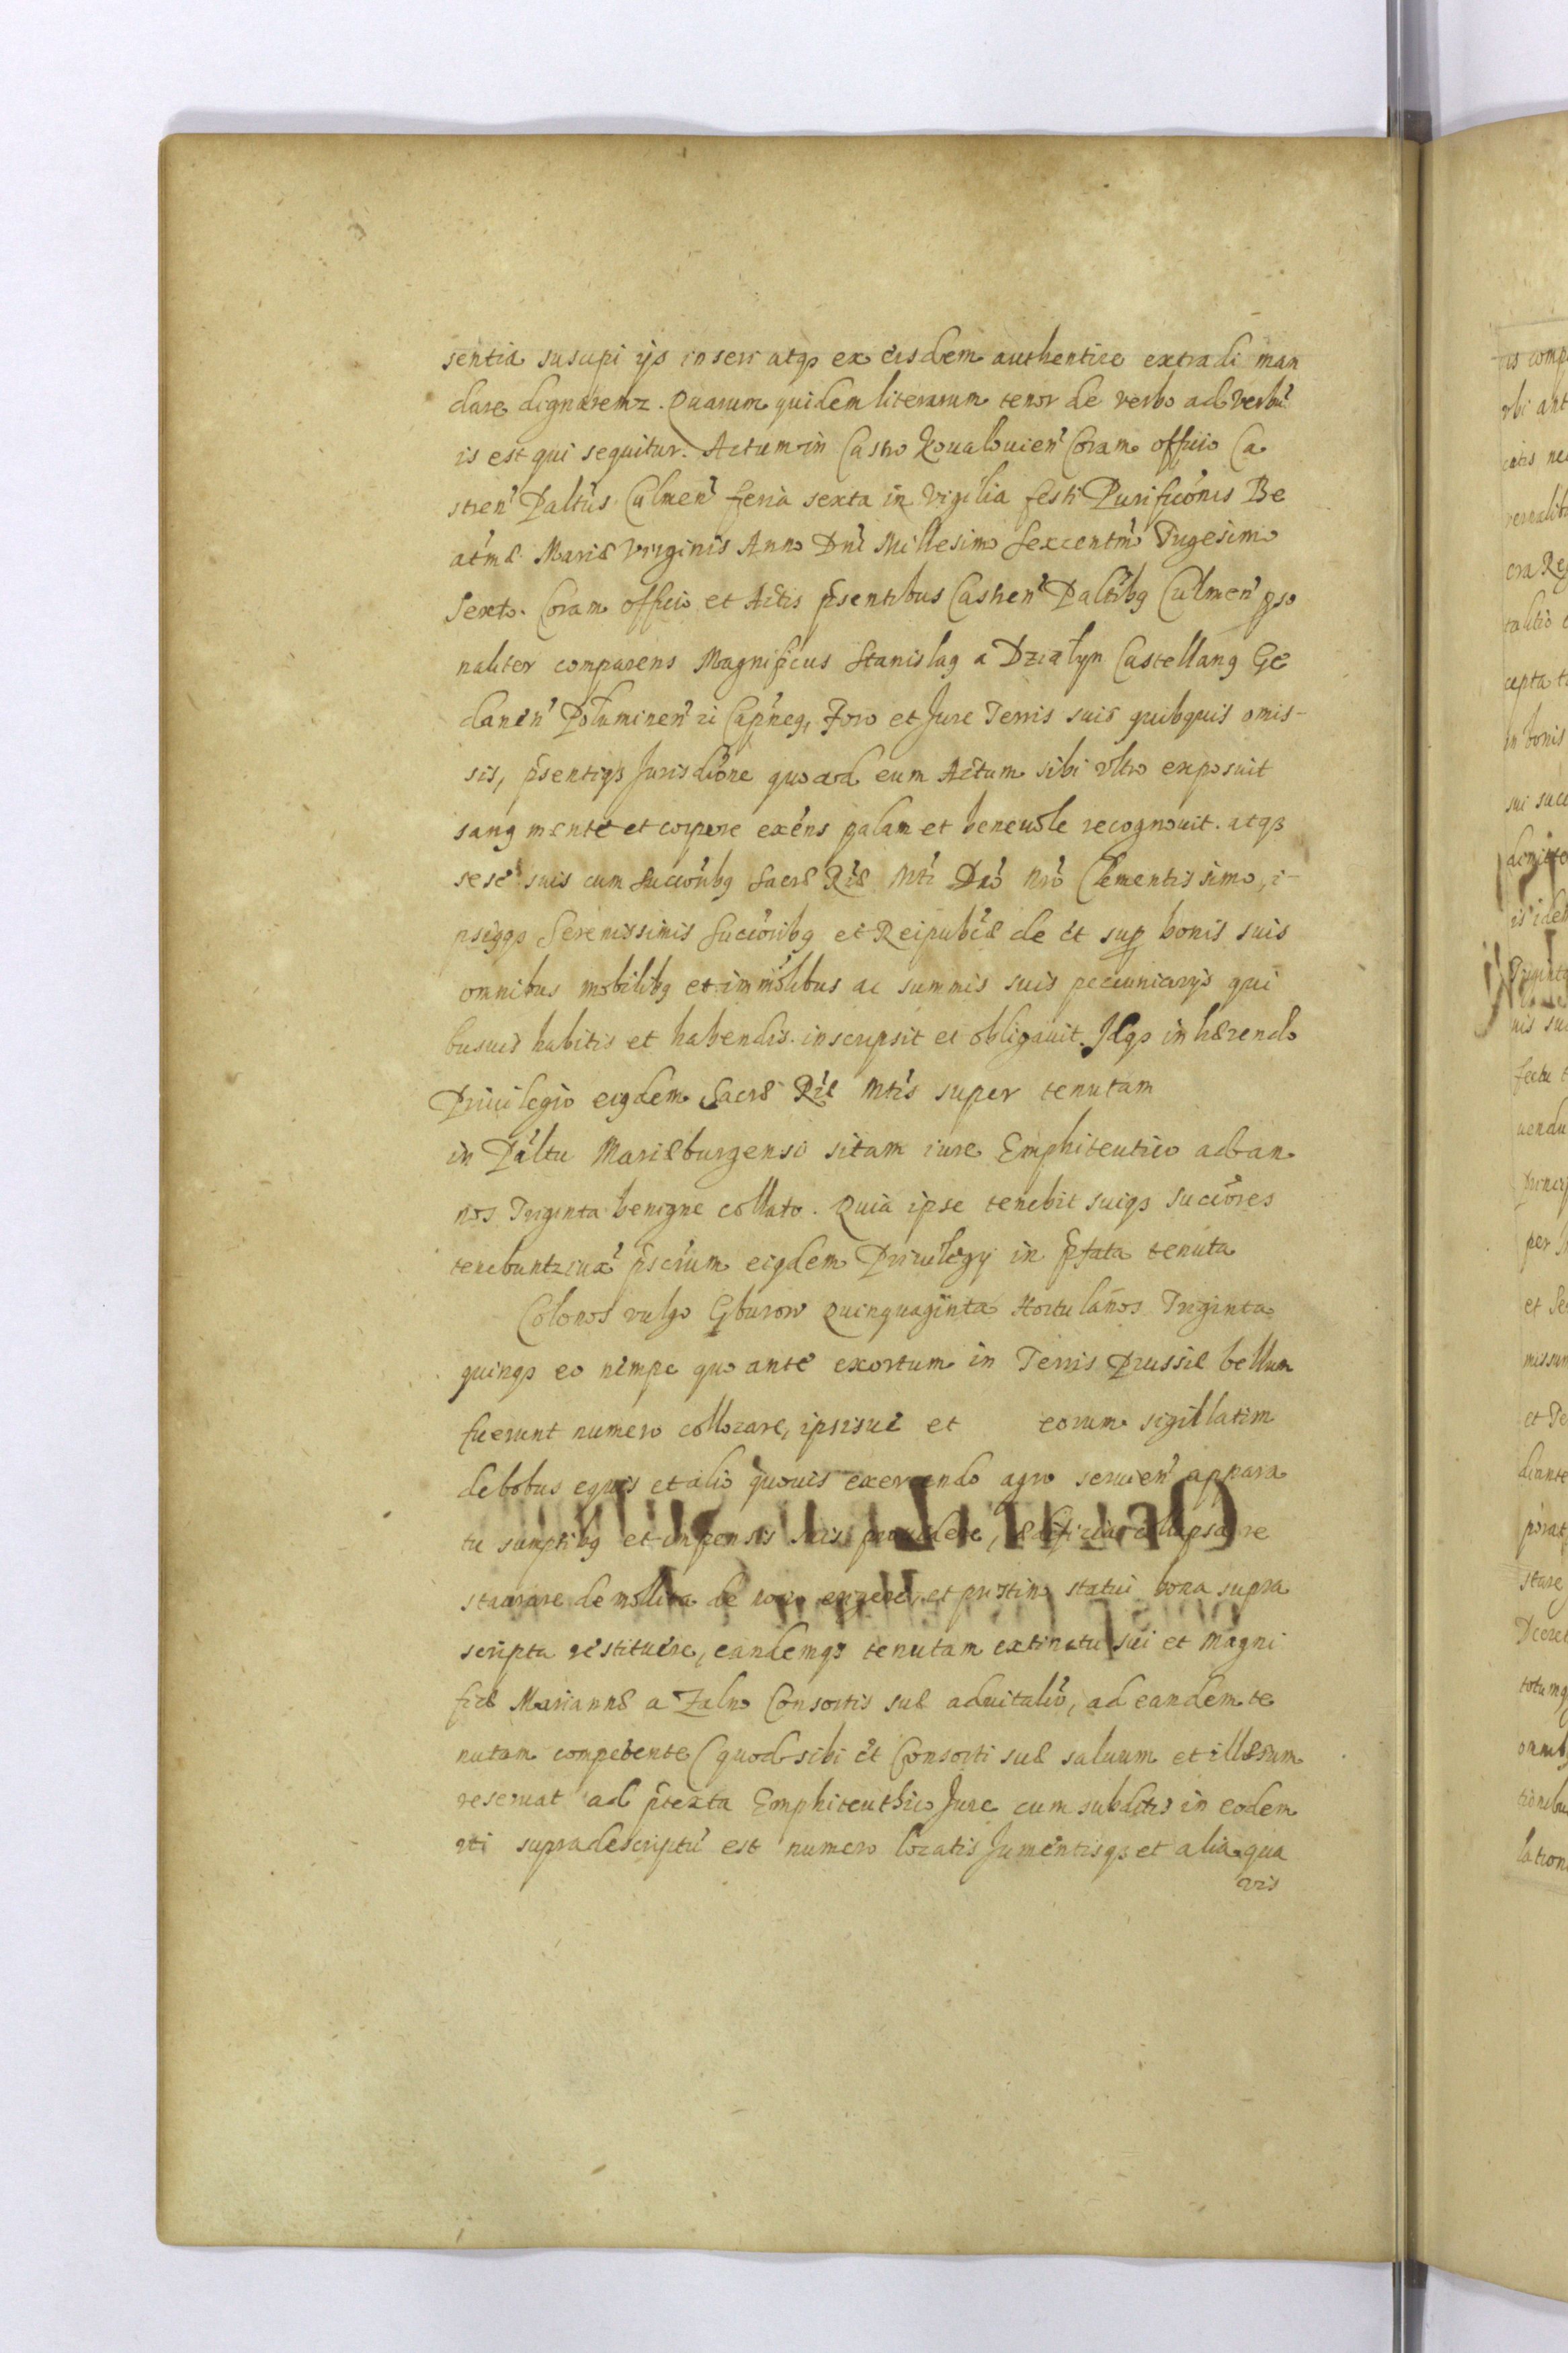 sentia susupi ijs inseri atqs ex eisdem authentice extradi man
dare dignaremz. Quarum quidem literarum tenor de verbo ad verbũ
is est qui sequitur. Actum in Castro Koualouien̄ Coram officio Ca
stren̄ Paltũs Culmen̄ feria sexta in vigilia festi Purificõnis Be
atmæ Mariæ virginis Anno Dnĩ Millesimo Sexcentmõ Trigesimo
Sexto. Coram officio et Actis p̃sentibus Castren̄ Paltibq Culmen̄ pso
naliter comparens Magnificus Stanislaq a Działyn Castellanq Ge
danen̄ Capneq, Foro et Jure Terris suis quibquis omis-
sis, p̃sentiqs Jurisdiõne quoad eum Actum sibi vltro exposuit
sanq mente et corpore exẽns palam et beneuole recognouit. atqs
sese suis cum Succõribq Sacræ Ríæ Mti Dnõ Nrõ Clementissimo, i-
psiqqs Serenissimis Succõribq et Reipubcæ de et sup bonis suis
omnibus mobilibq et immõlibus ac summis suis pecuniarijs qui
busuis habitis et habendis inscripsit et obligauit. Idqs in hærendo
Priuilegio eiqdem Sacræ Ríæ Mtis super tenutam
in Pãltu Mariæburgensi sitam iure Emphiteutico ad an
nos Triginta benigne collato. Quia ipse tenebit suiqs succõres
tenebuntz iuxa p̃scrum eiqdem Priuilegij in p̃fata tenuta
Colonos vulgo Gburow Quinquaginta Hortulanos Triginta
quinqs eo nimpe quo ante exortum in Terris Prussiæ bellum
fuerunt numero collocare, ipsisue et eorum sigillatim
de bobus equis et alio quouis exercendo agro seruien̄ appara
tu sumptibq et impensis suis prouidere, ædificia collapsa re
staurare demolita de nouo erigere et pristino statui bona supra
scripta restituere, eandemqs tenutam extinctu sui et Magni
ficæ Mariannæ a Zalno Consortis suæ aduitalio, ad eandem te
nutam competente (quod sibi et Consorti suæ saluum et illæsum
reseruat ad p̃texta Emphiteuthico Jure cum subditis in eodem
vti supradescriptũ est numero locatis Jumentisqs et alia qua
vis